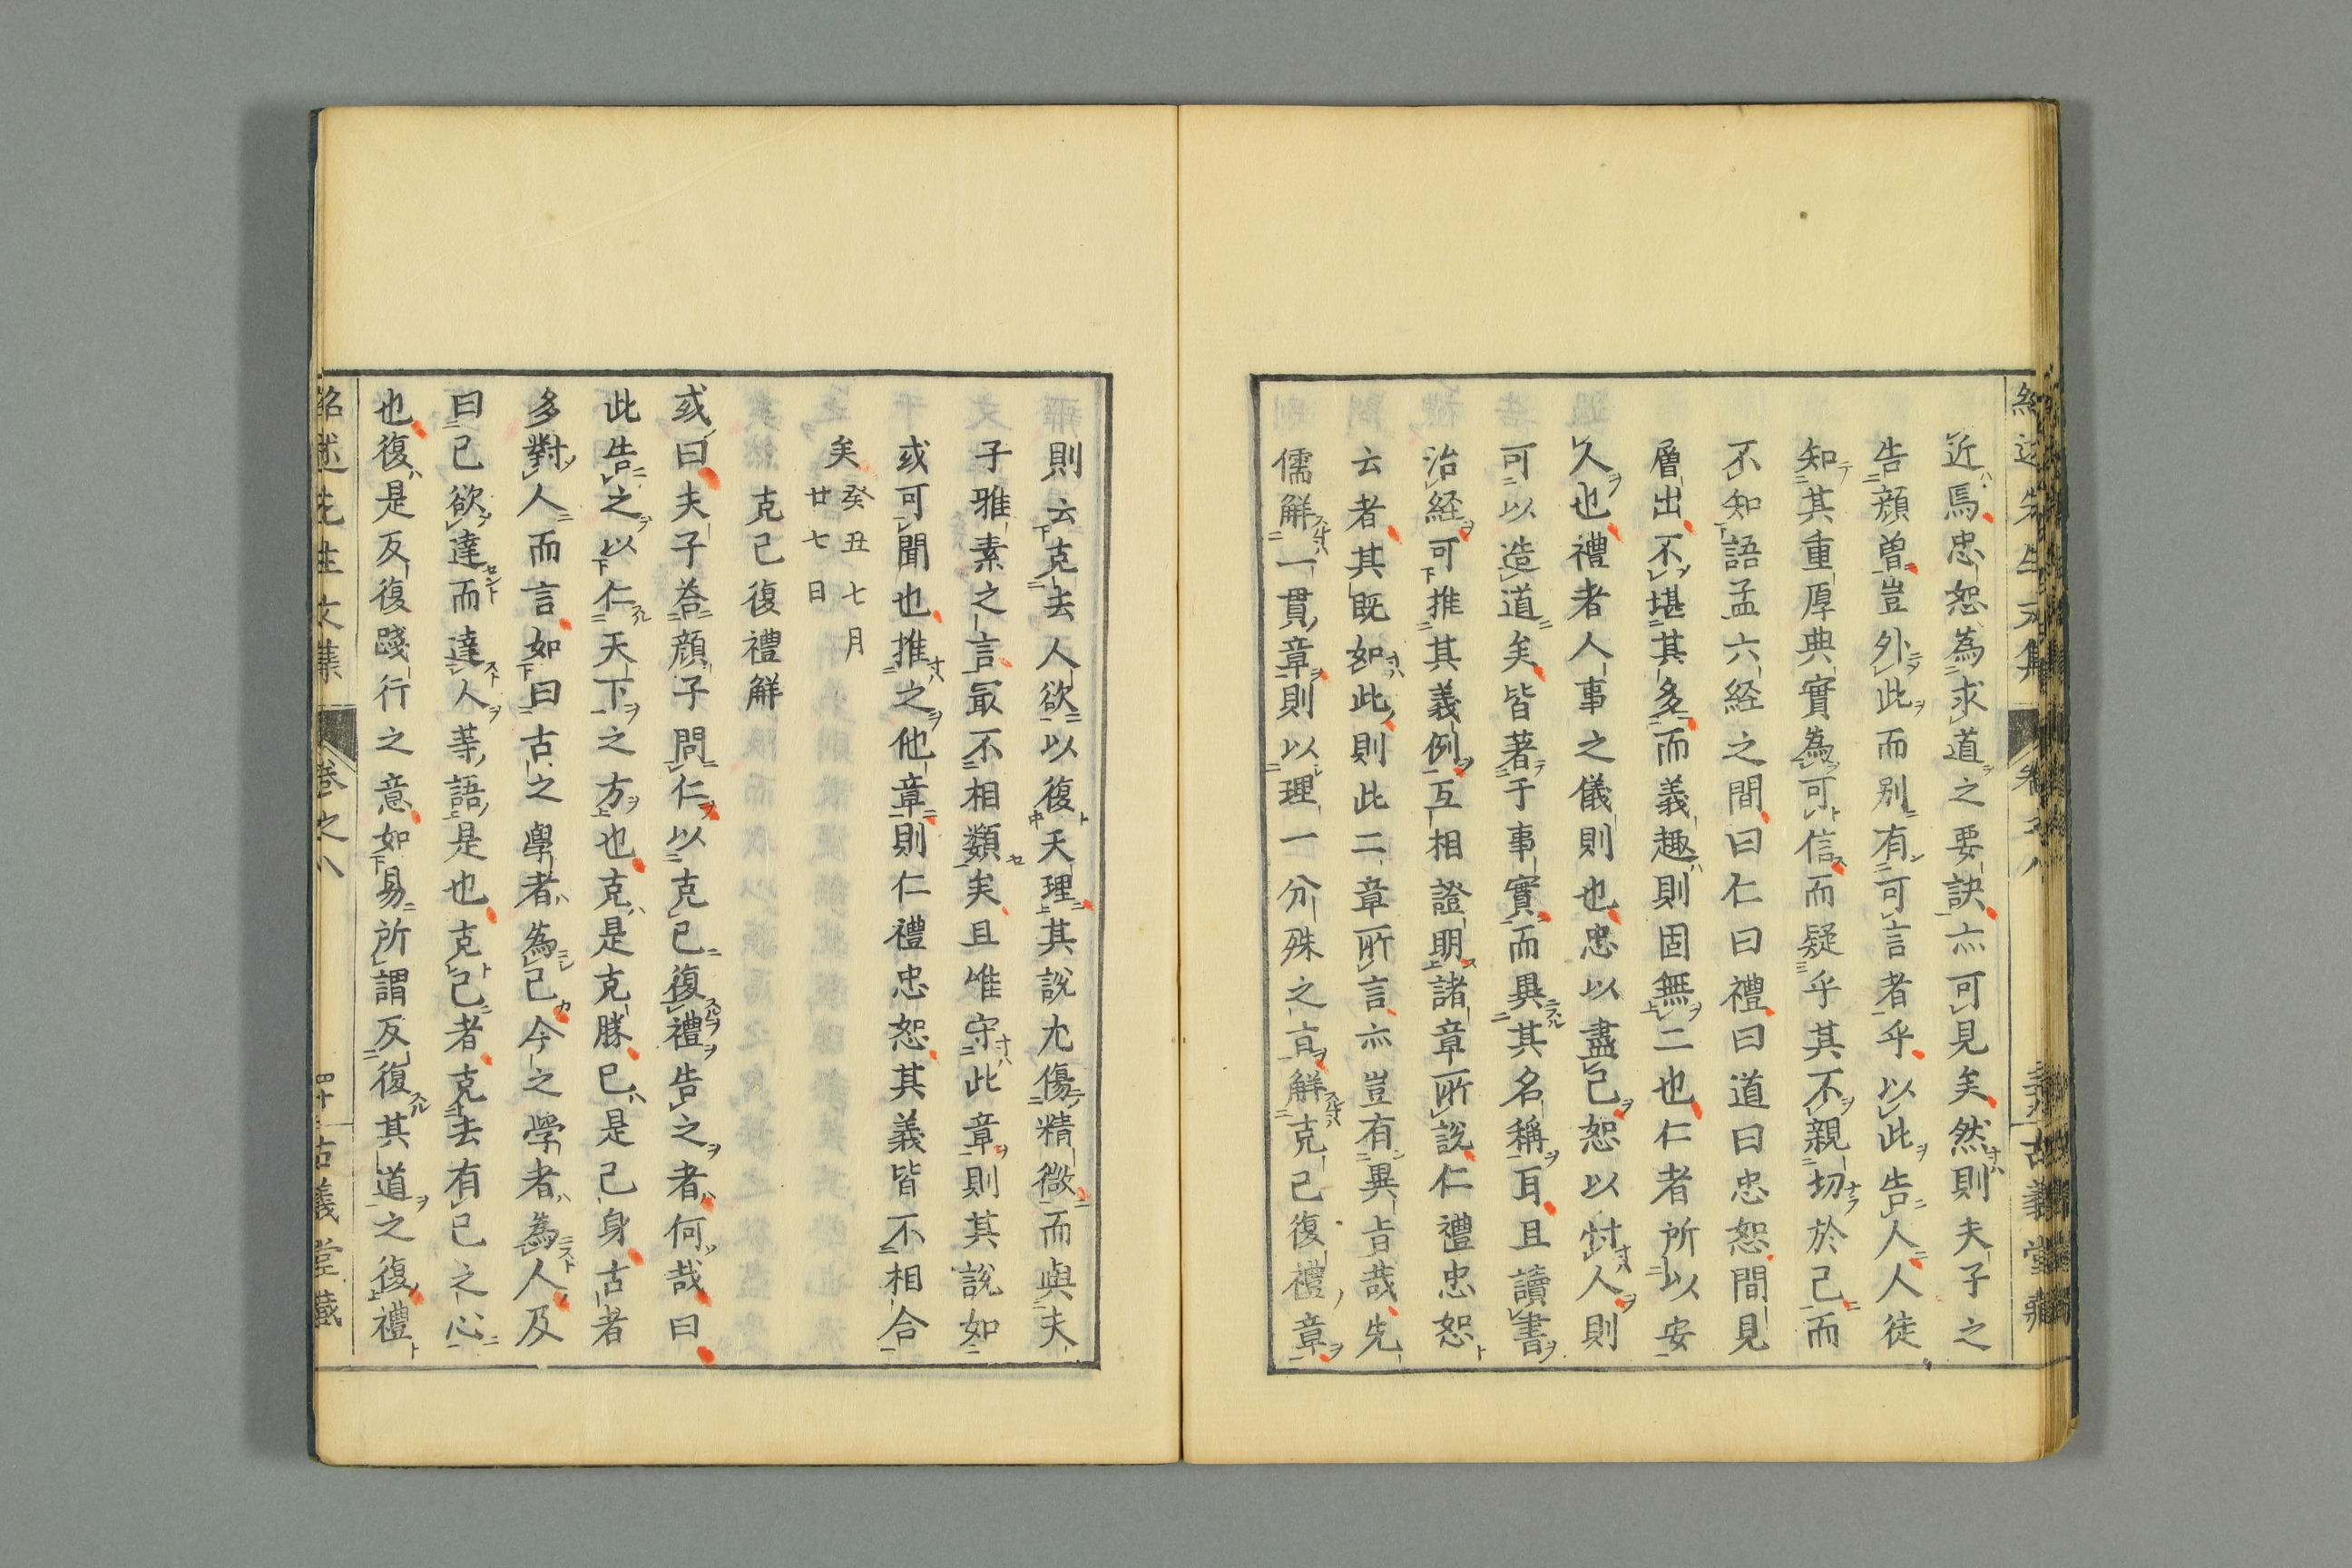 近焉忠恕為求道之要訣亦可見矣然則夫子之
告顔曽豈外此而别有可言者乎以此告人人徒
知其重厚典實為可信而疑乎其不親切於己而
不知語孟六経之間曰仁曰禮曰道曰忠恕間見
層出不堪其多而義趣則固無二也仁者所以安
久也禮者人事之儀則也忠以盡己恕以忖人則
可以造道矣皆著于事實而異其名稱耳且讀書
治経可推其義例互相證明諸章所說仁禮忠恕
云者其既如此則此二章所言亦豈有異㫖哉先
儒解一貫章則以理一分殊之㫖解克己復禮章
則云克去人欲以復天理其說尤傷精微而與夫
子雅素之言最不相類矣且唯守此章則其說如
或可聞也推之他章則仁禮忠恕其義皆不相合
矣 癸丑七月
廿七日
克己復禮解
或曰夫子荅顔子問仁以克己復禮告之者何哉曰
此告之以仁天下之方也克是克勝己是己身古者
多對人而言如曰古之學者為己今之學者為人及
曰己欲達而達人等語是也克己者克去有己之心
也復是反復踐行之意如易所謂反復其道之復禮
紹述先生文集 卷之八 古義堂藏